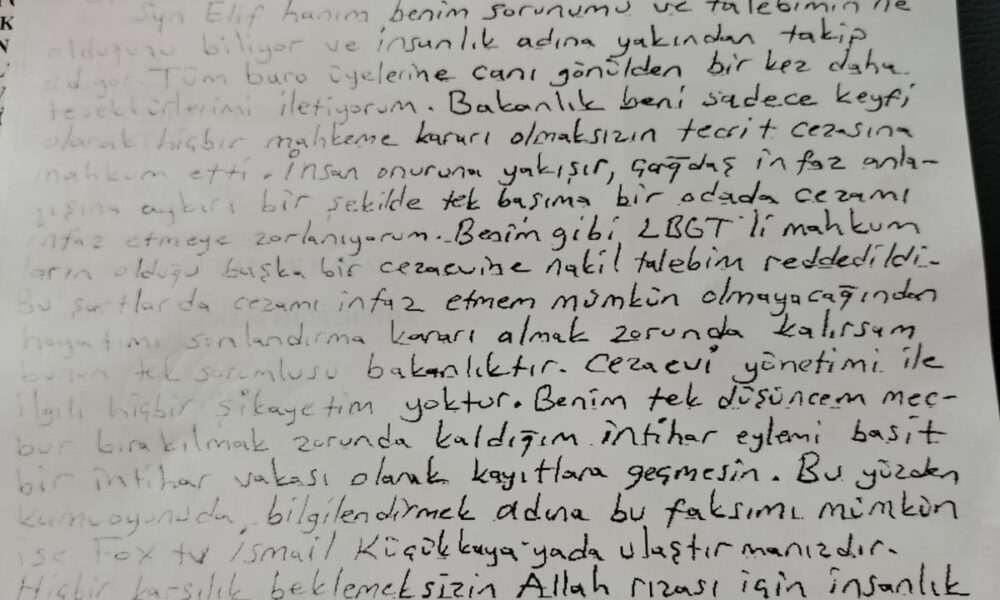 K
N
Syn Elif hanım benim sorunumu ve talebimin ne
olduğunu biliyor ve insanlık adına yakından takip
ediyor. Tüm büro üyelerine canı gönülden bir kez daha
teşekkürlerimi iletiyorum. Bakanlık beni sadece keyfi
olarak hiçbir mahkeme kararı olmaksızın tecrit cezasına
mahkum etti. İnsan onuruna yakışır, çağdaş infaz anla-
yışına aykırı bir şekilde tek başıma bir odada cezamı
infaz etmeye zorlanıyorum. Benim gibi LBGT'li mahkum
ların olduğu başka bir cezaevine nakil talebim reddedildi.
Bu şartlarda cezamı infaz etmem mümkün olmayacağından
hayatımı sonlandırma kararı almak zorunda kalırsam
bunun tek sorumlusu bakanlıktır. Cezaevi yönetimi ile
ilgili hiçbir şikayetim yoktur. Benim tek düşüncem mec-
bur bırakılmak zorunda kaldığım intihar eylemi basit
bir intihar vakası olarak kayıtlara geçmesin. Bu yüzden
kamuoyunuda bilgilendirmek adına bu faksımı mümkün
ise Fox tv İsmail Küçükkaya'yada ulaştırmanızdır.
Hiçbir karşılık beklemeksizin Allah rızası için insanlık